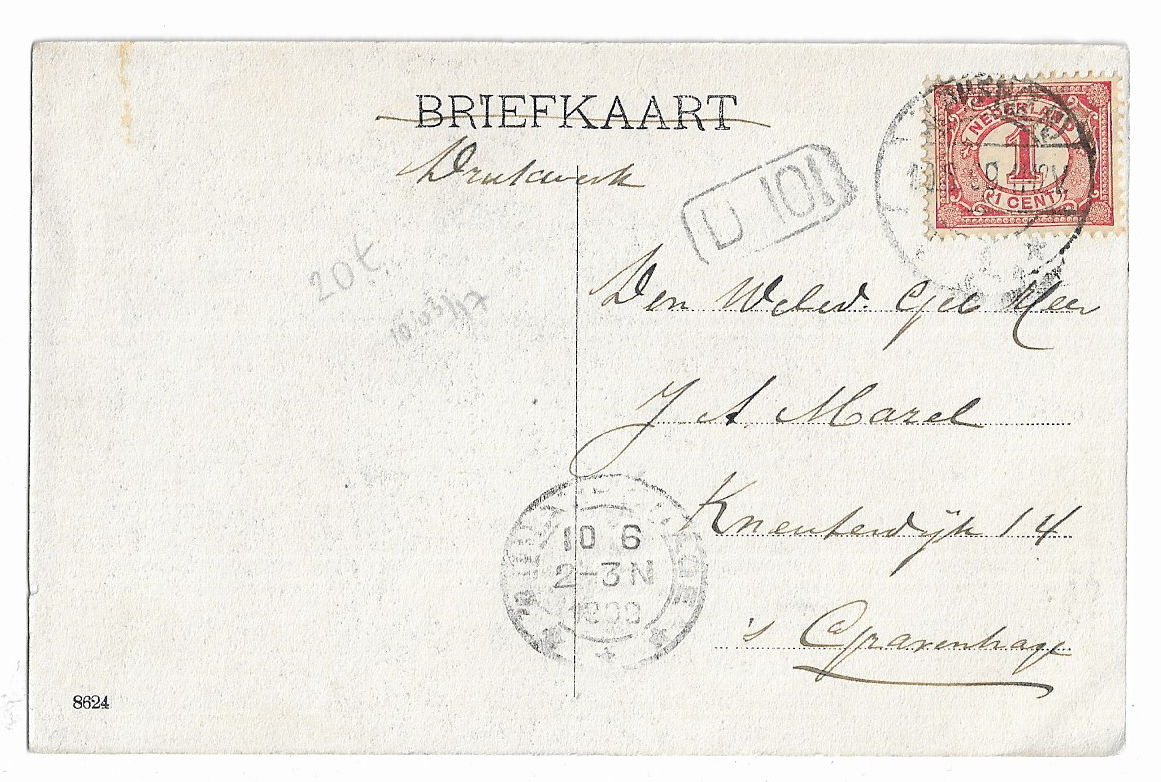 BRIEFKAART
Drukwerk
D 101
NEDERLAND
1
1 CENT
20€
Den Weled. Geb Heer
J A Mazel
Kneuterdijk 14
's Gravenhage
10 6
2-3N
1909
8624